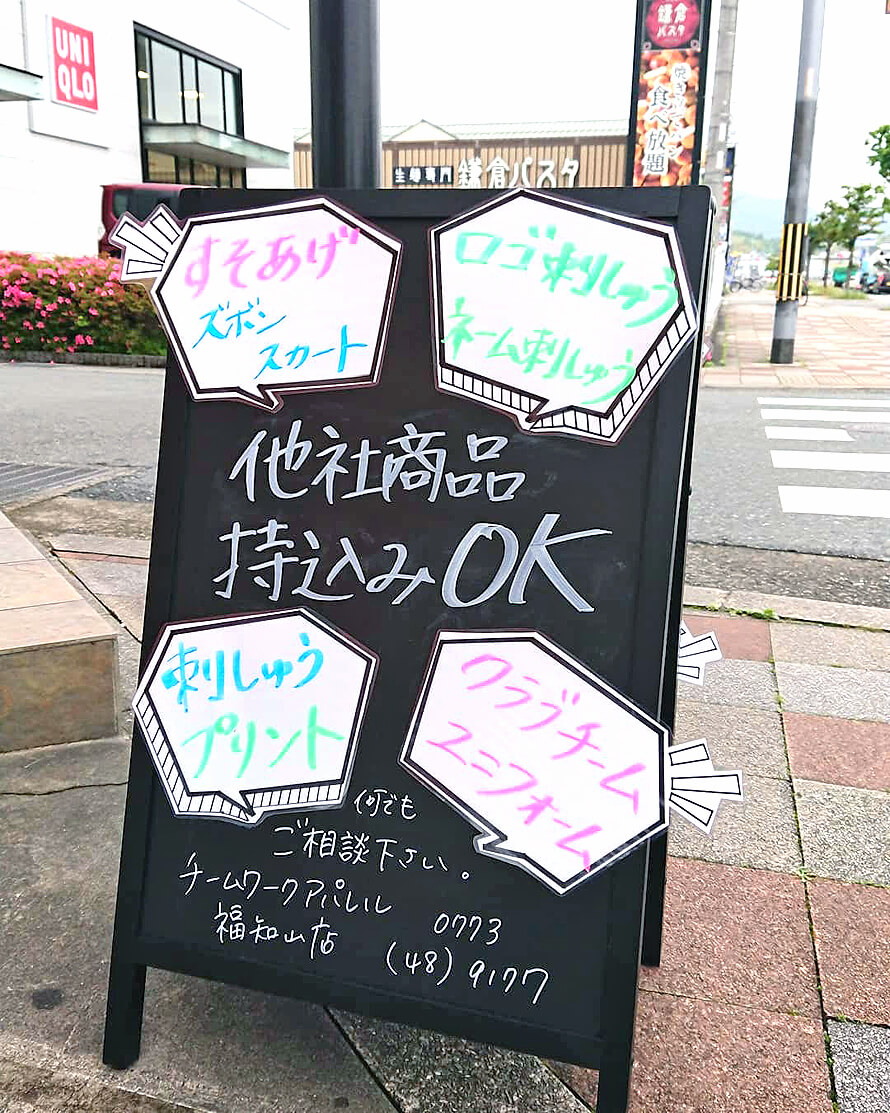 UNI
QLO
鎌倉
パスタ
食べ放題
生麺専門 鎌倉パスタ
すそあげ
ズボン
スカート
ロゴ刺しゅう
ネーム刺しゅう
他社商品
持込みOK
刺しゅう
プリント
クラブチーム
ユニフォーム
何でも
ご相談下さい。
チームワークアパレル
福知山店
0773
(48)9177